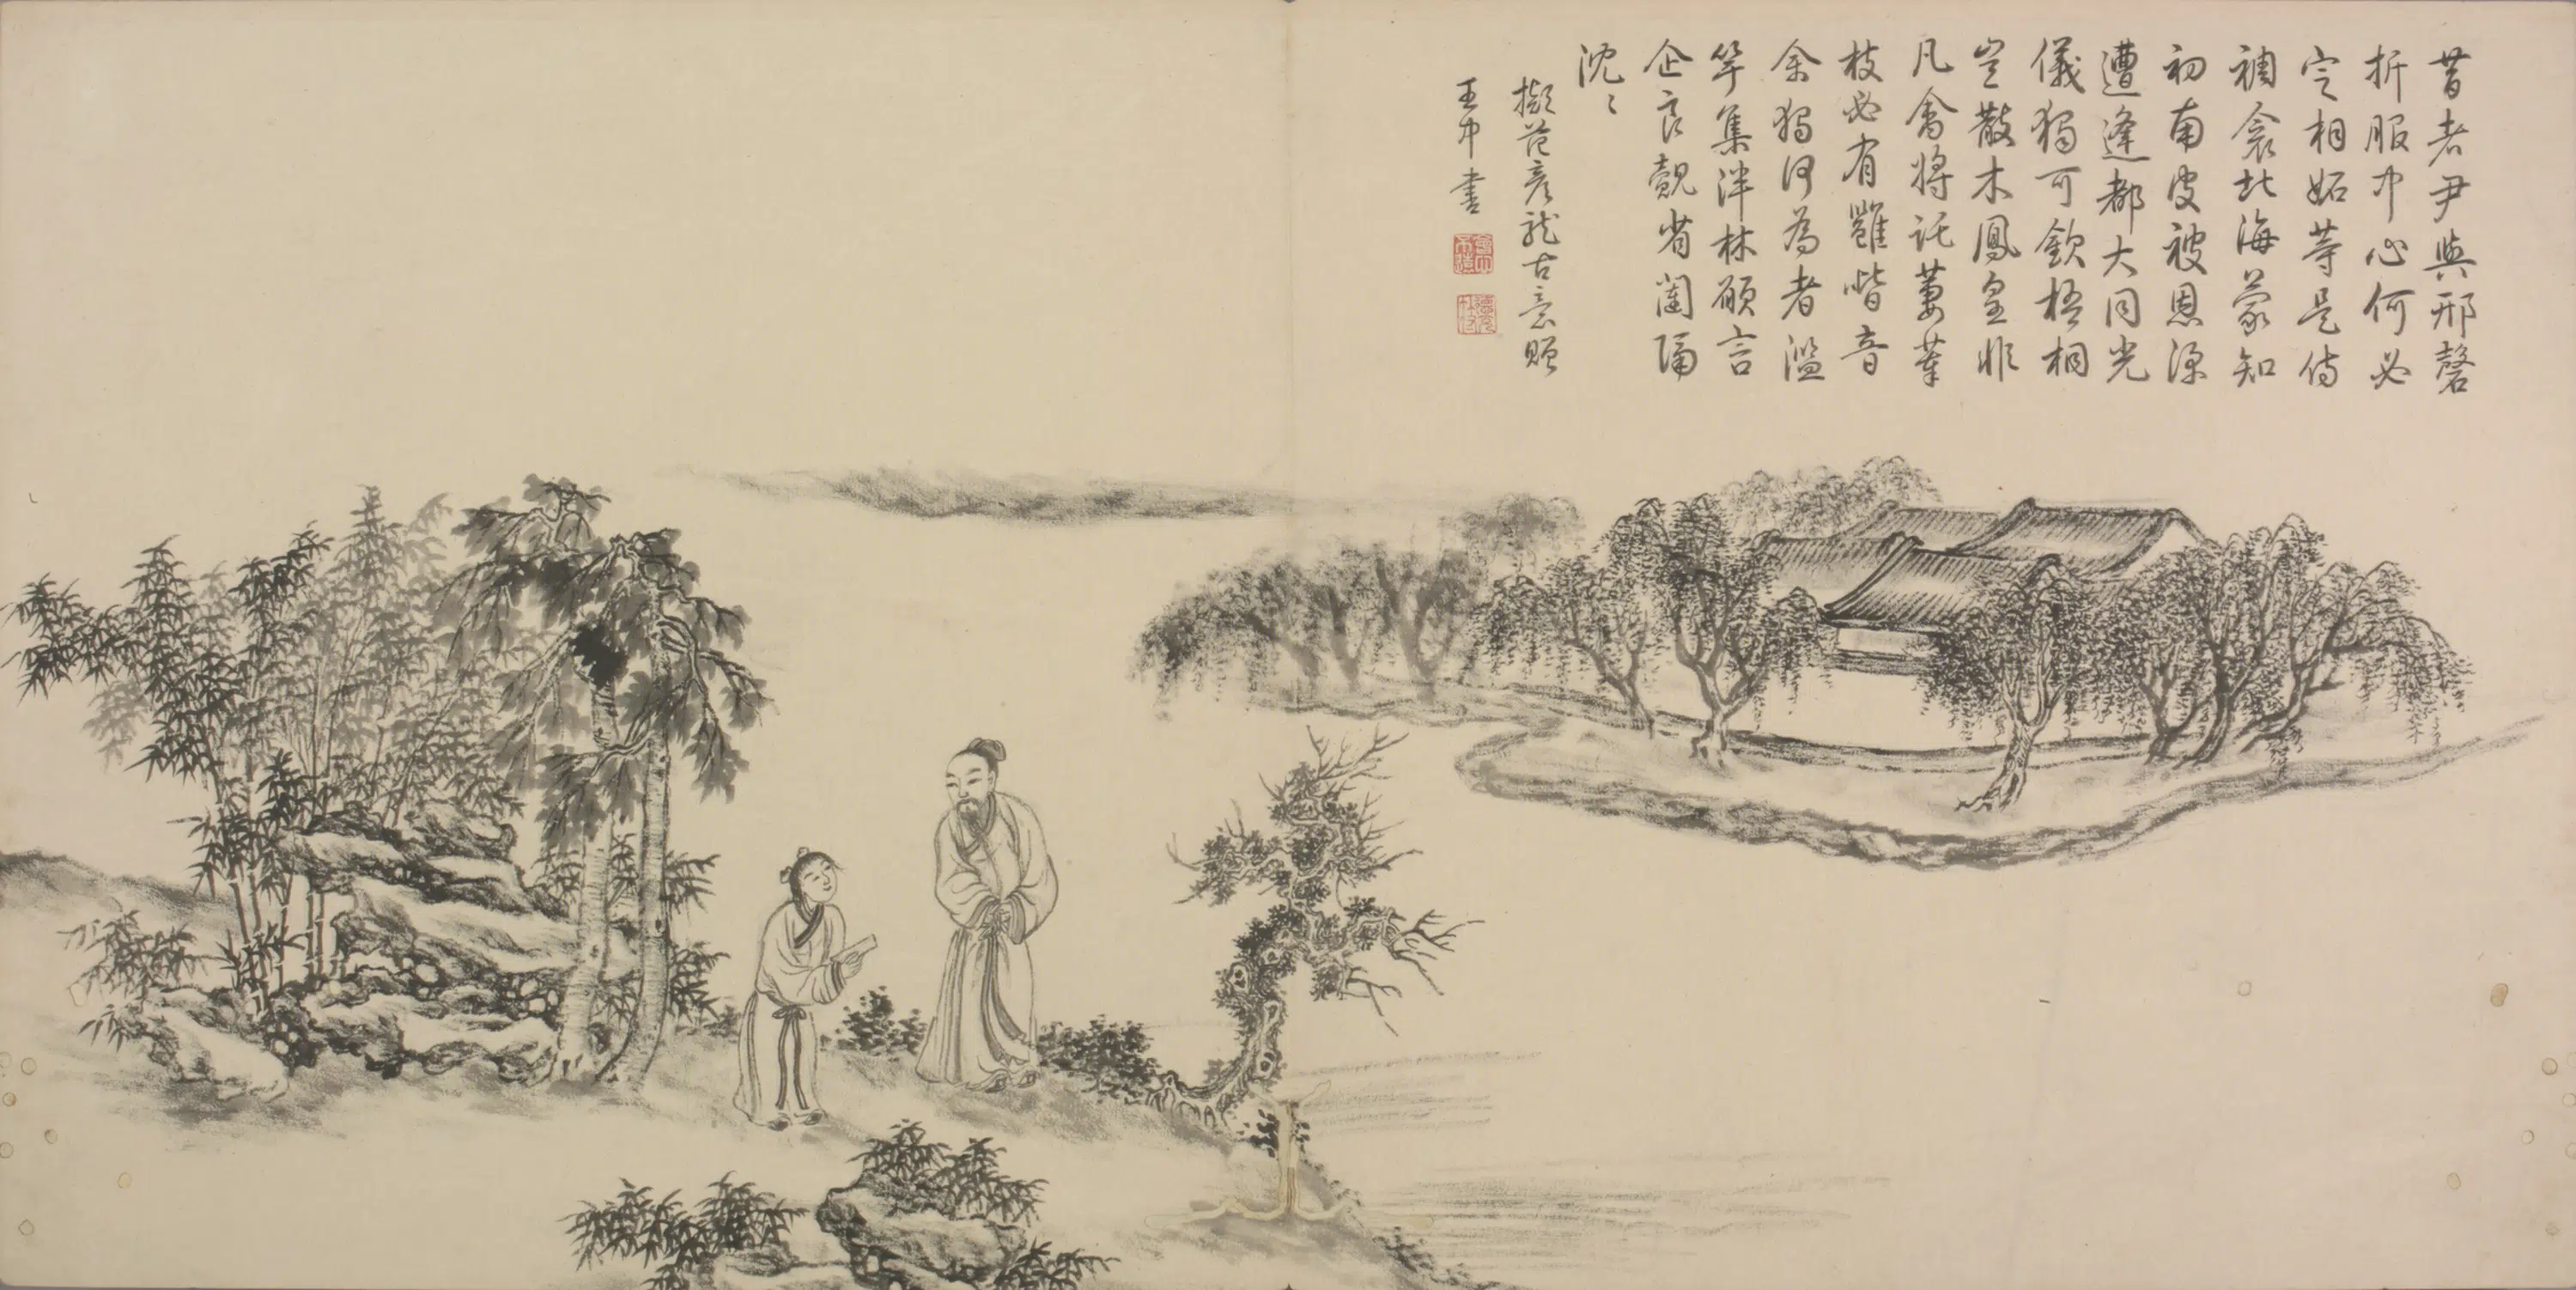 昔者尹與邢磬
折服中心何必
定相妬等是侍
裯衾北海蒙知
初南皮被恩深
遭逢都大同光
儀獨可欽梧桐
豈散木鳳皇非
凡禽將託萋菶
枝必有雝喈音
余獨何為者濫
竽集泮林願言
企良覿省闥隔
沈〻
擬范彥龍古意贈
王中書